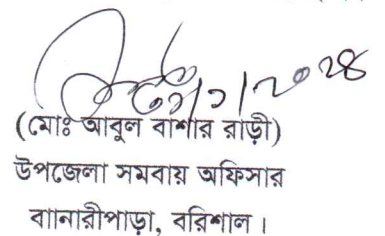 (মোঃ আবুল বাশার রাড়ী)
উপজেলা সমবায় অফিসার
বাানারীপাড়া, বরিশাল।